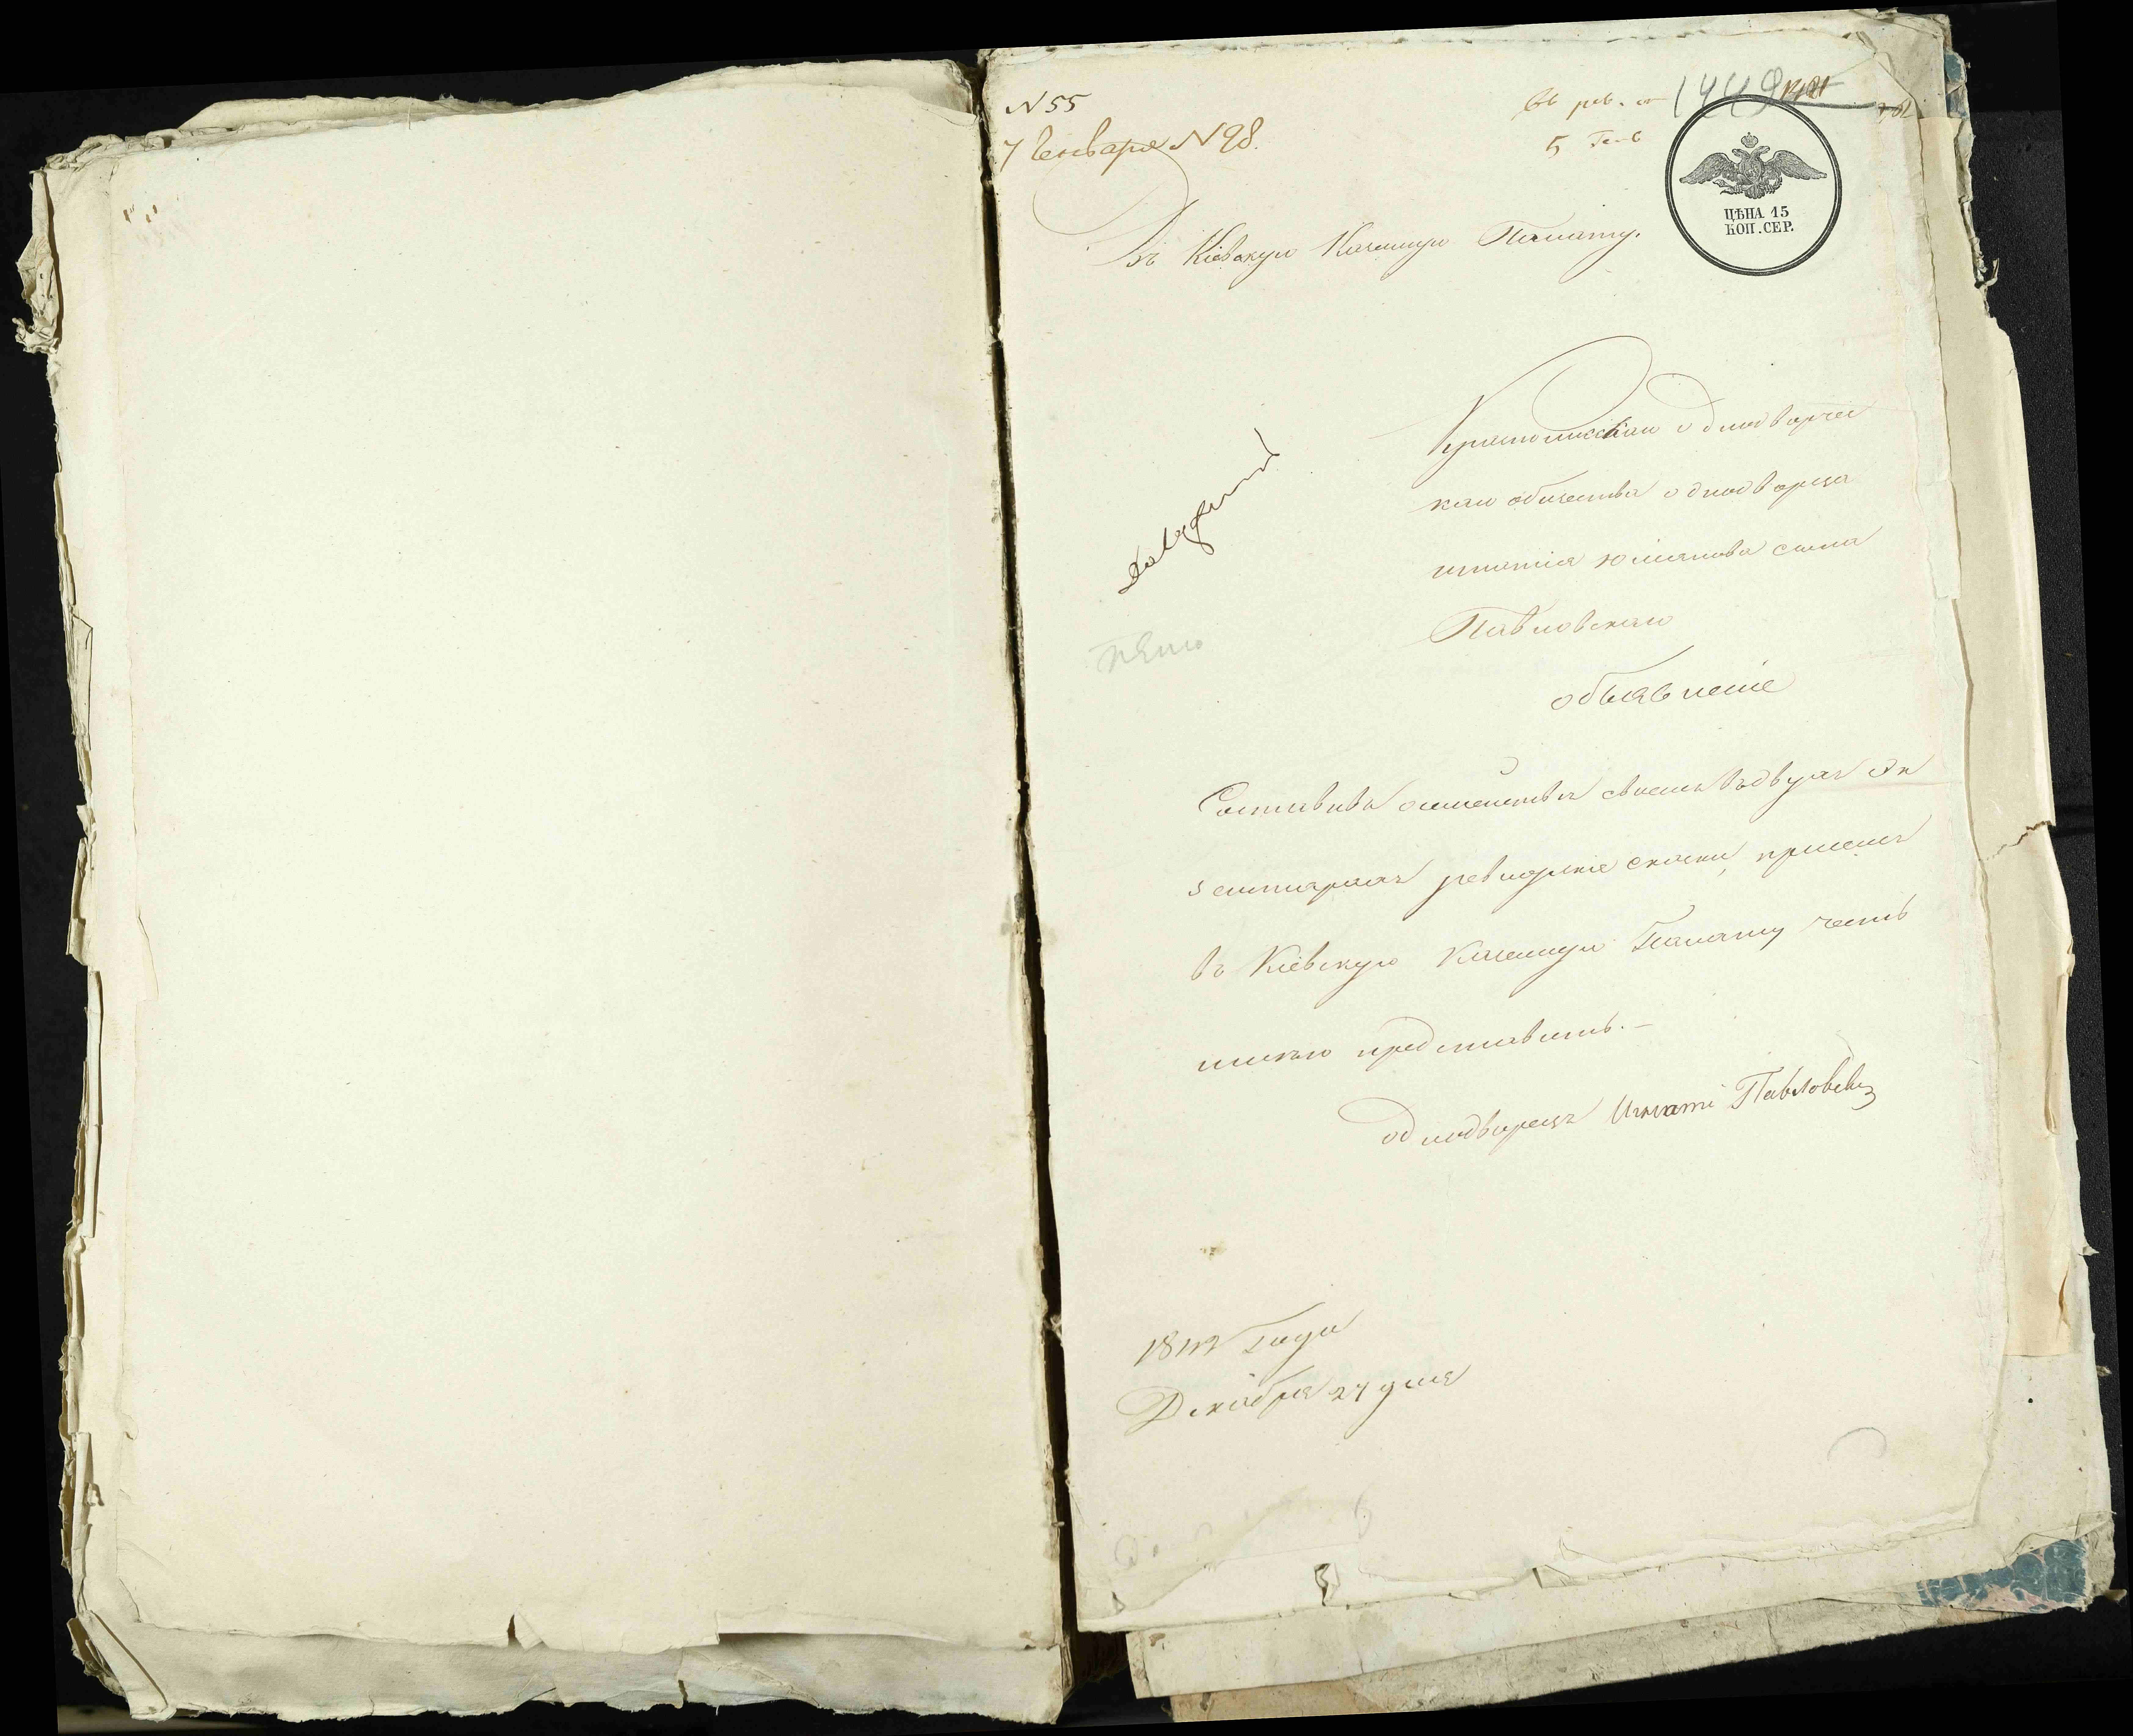 N 55
7 Генваря N 98.
въ рев. от
5 Ген
1449
ЦѢНА 15
КОП. СЕР.
Въ Кіевскую Казенную Палату.
однодворчес
каго общества однодворца
игнатія сына
Павловскаго
объявленіе
Составивъ о семействѣ своемъ въ двухъ эк
земплярахъ ревизскіе сказки, при семъ
въ Кіевскую Казенную Палату честь
имѣю представить. —
однодворецъ Игнатій Павловскій
года
Декабря 27 дня